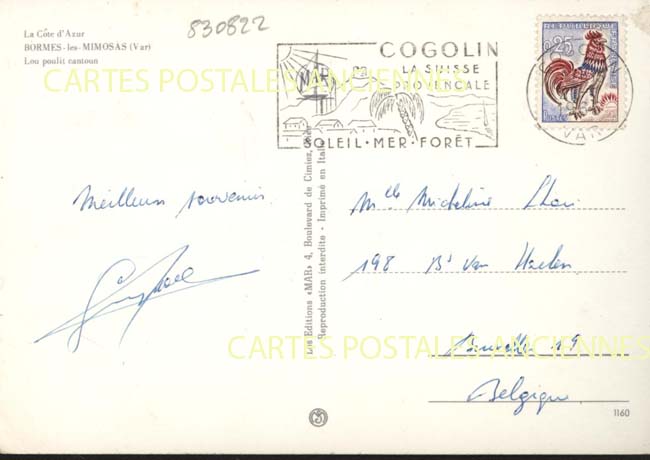 830822
La Côte d'Azur
BORMES-les-MIMOSAS (Var)
Lou poulit cantoun
CARTES POSTALES ANCIENNES
COGOLIN
LA SUISSE
PROVENCALE
MAR
SOLEIL·MER·FORÊT
0,25
VAR
Meilleurs souvenirs
Les Editions «MAR» 4, Boulevard de Cimiez, Nice
Reproduction interdite - Imprimé en Italie
Mlle Micheline
198 Bd Van Haelen
Bruxelles 19
Belgique
CARTES POSTALES ANCIENNES
1160